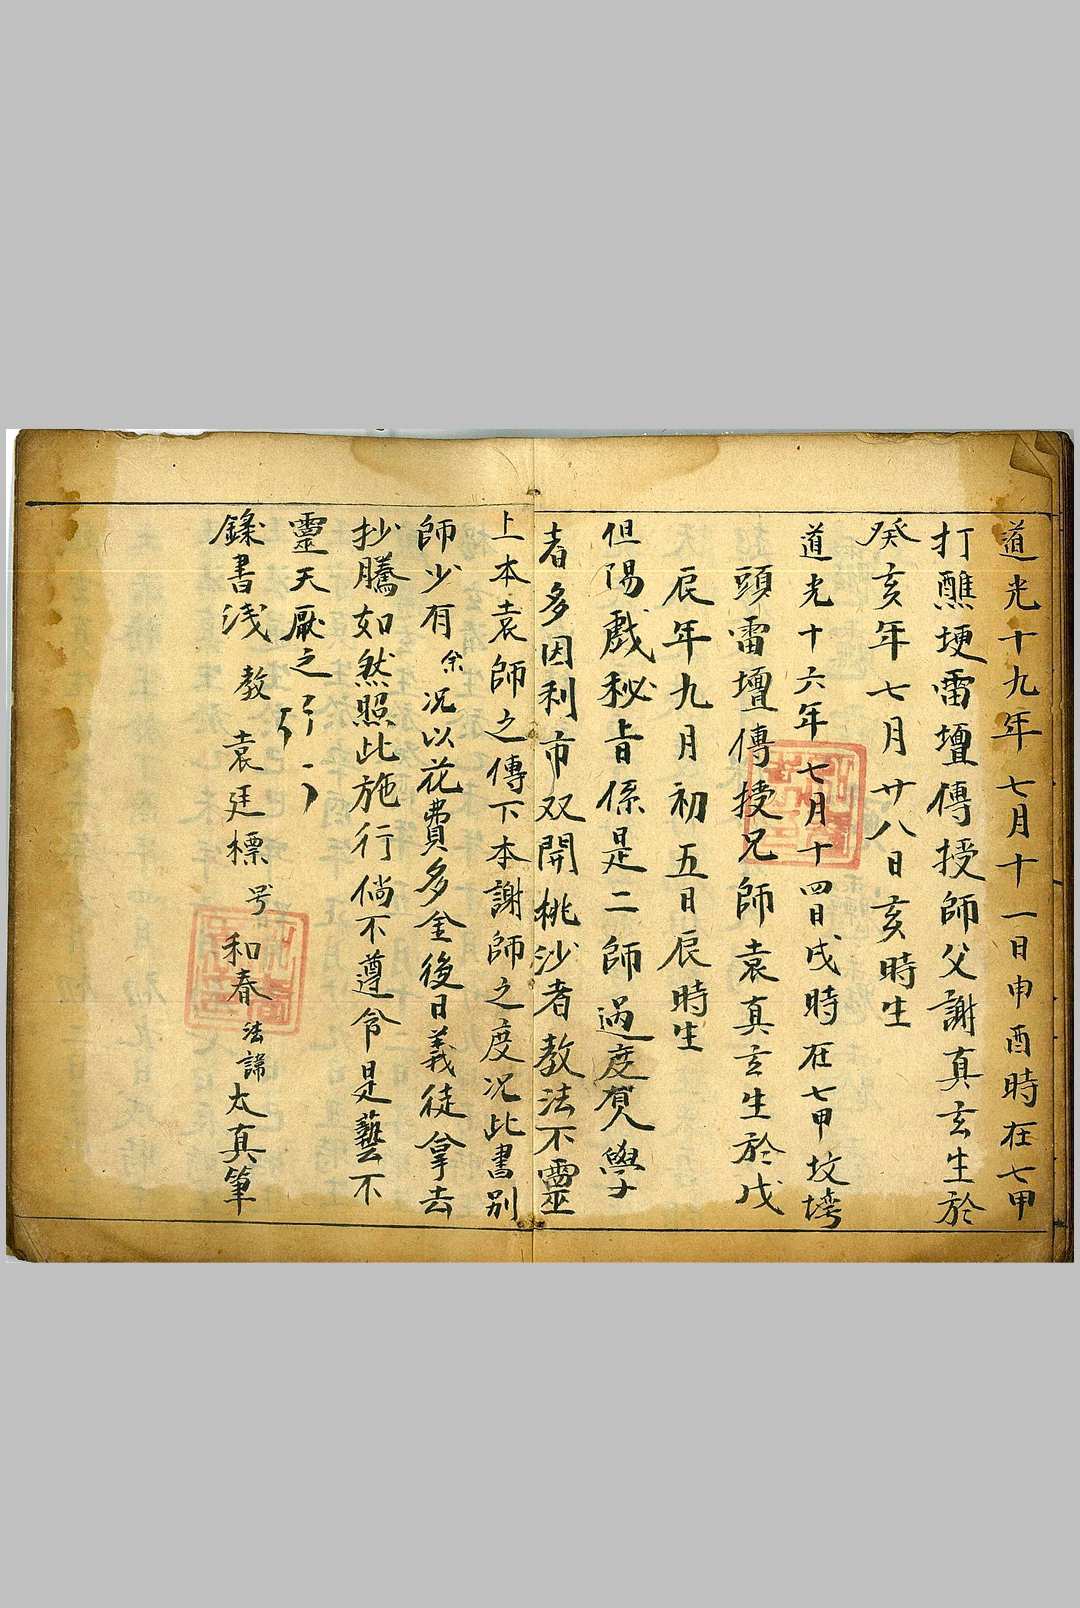 道光十九年七月十一日申酉時在七甲
打醮埂雷壇傳授師父謝真玄生於
癸亥年七月廿八日亥時生
道光十六年七月十四日戌時在七甲坟塆
頭雷壇傳授兄師袁真玄生於戊
辰年九月初五日辰時生
但陽戲秘旨係是二師過度賀人學
者多因利市双開桃沙者教法不靈
上本袁師之傳下本謝師之度况此書别
師少有余况以花費多金後日義徒拿去
抄騰如然照此施行倘不遵命是藝不
靈天厭之
錄書浅教袁廷標号和春法諱太真筆